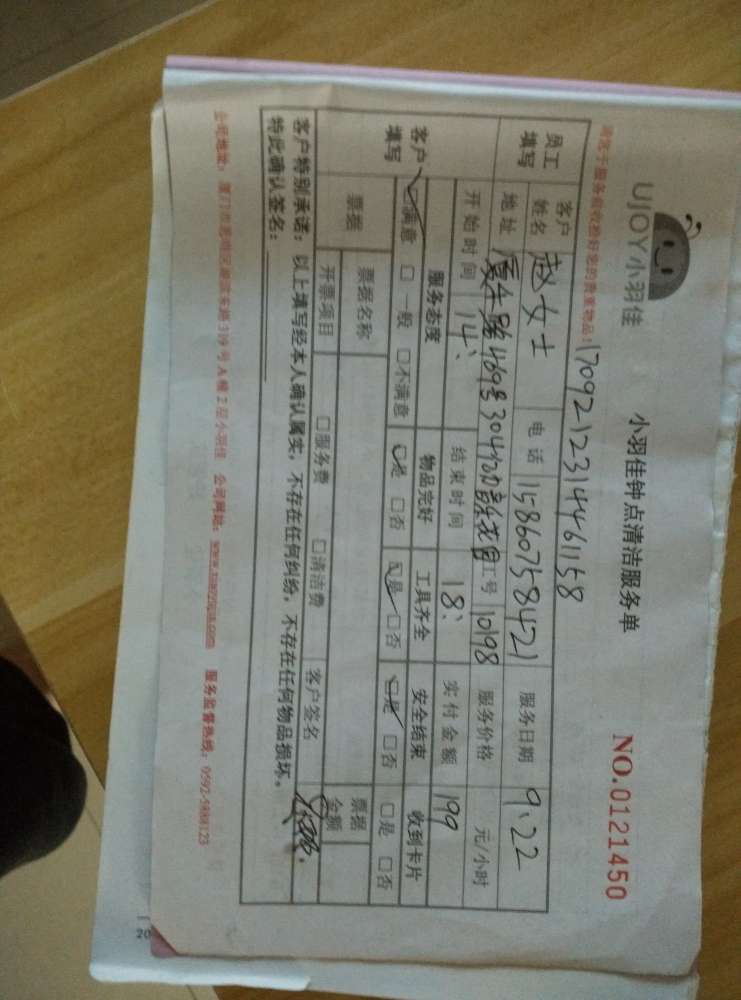 UJOY小羽佳
小羽佳钟点清洁服务单
NO.0121450
请您于服务前收拾好您的贵重物品!
1709212314461158
员工填写 客户姓名 赵女士 电话 15860758421 服务日期 9.22
地址 厦禾路469号304 工号 10198 服务价格 元/小时
开始时间 14: 结束时间 18: 实付金额 199
客户填写 服务态度 物品完好 工具齐全 安全结束 收到卡片
☑满意 □一般 □不满意 ☑是 □否 ☑是 □否 ☑是 □否 □是 □否
票据 票据名称 票据金额
开票项目 □服务费 □清洁费 客户签名
客户特别承诺:以上填写经本人确认属实,不存在任何纠纷,不存在任何物品损坏。
特此确认签名:
公司地址:厦门市思明区湖滨东路319号A幢2层小羽佳 公司网址:www.xiaoyujia.com 服务监督热线:0592-5888123
20